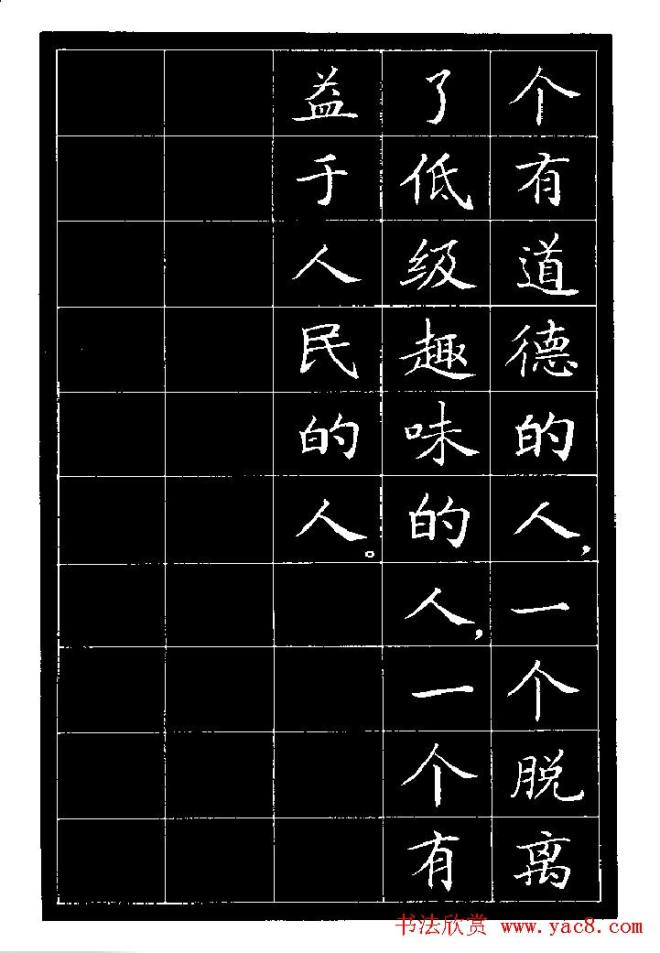 个有道德的人,一个脱离
了低级趣味的人,一个有
益于人民的人。
书法欣赏 www.yac8.com